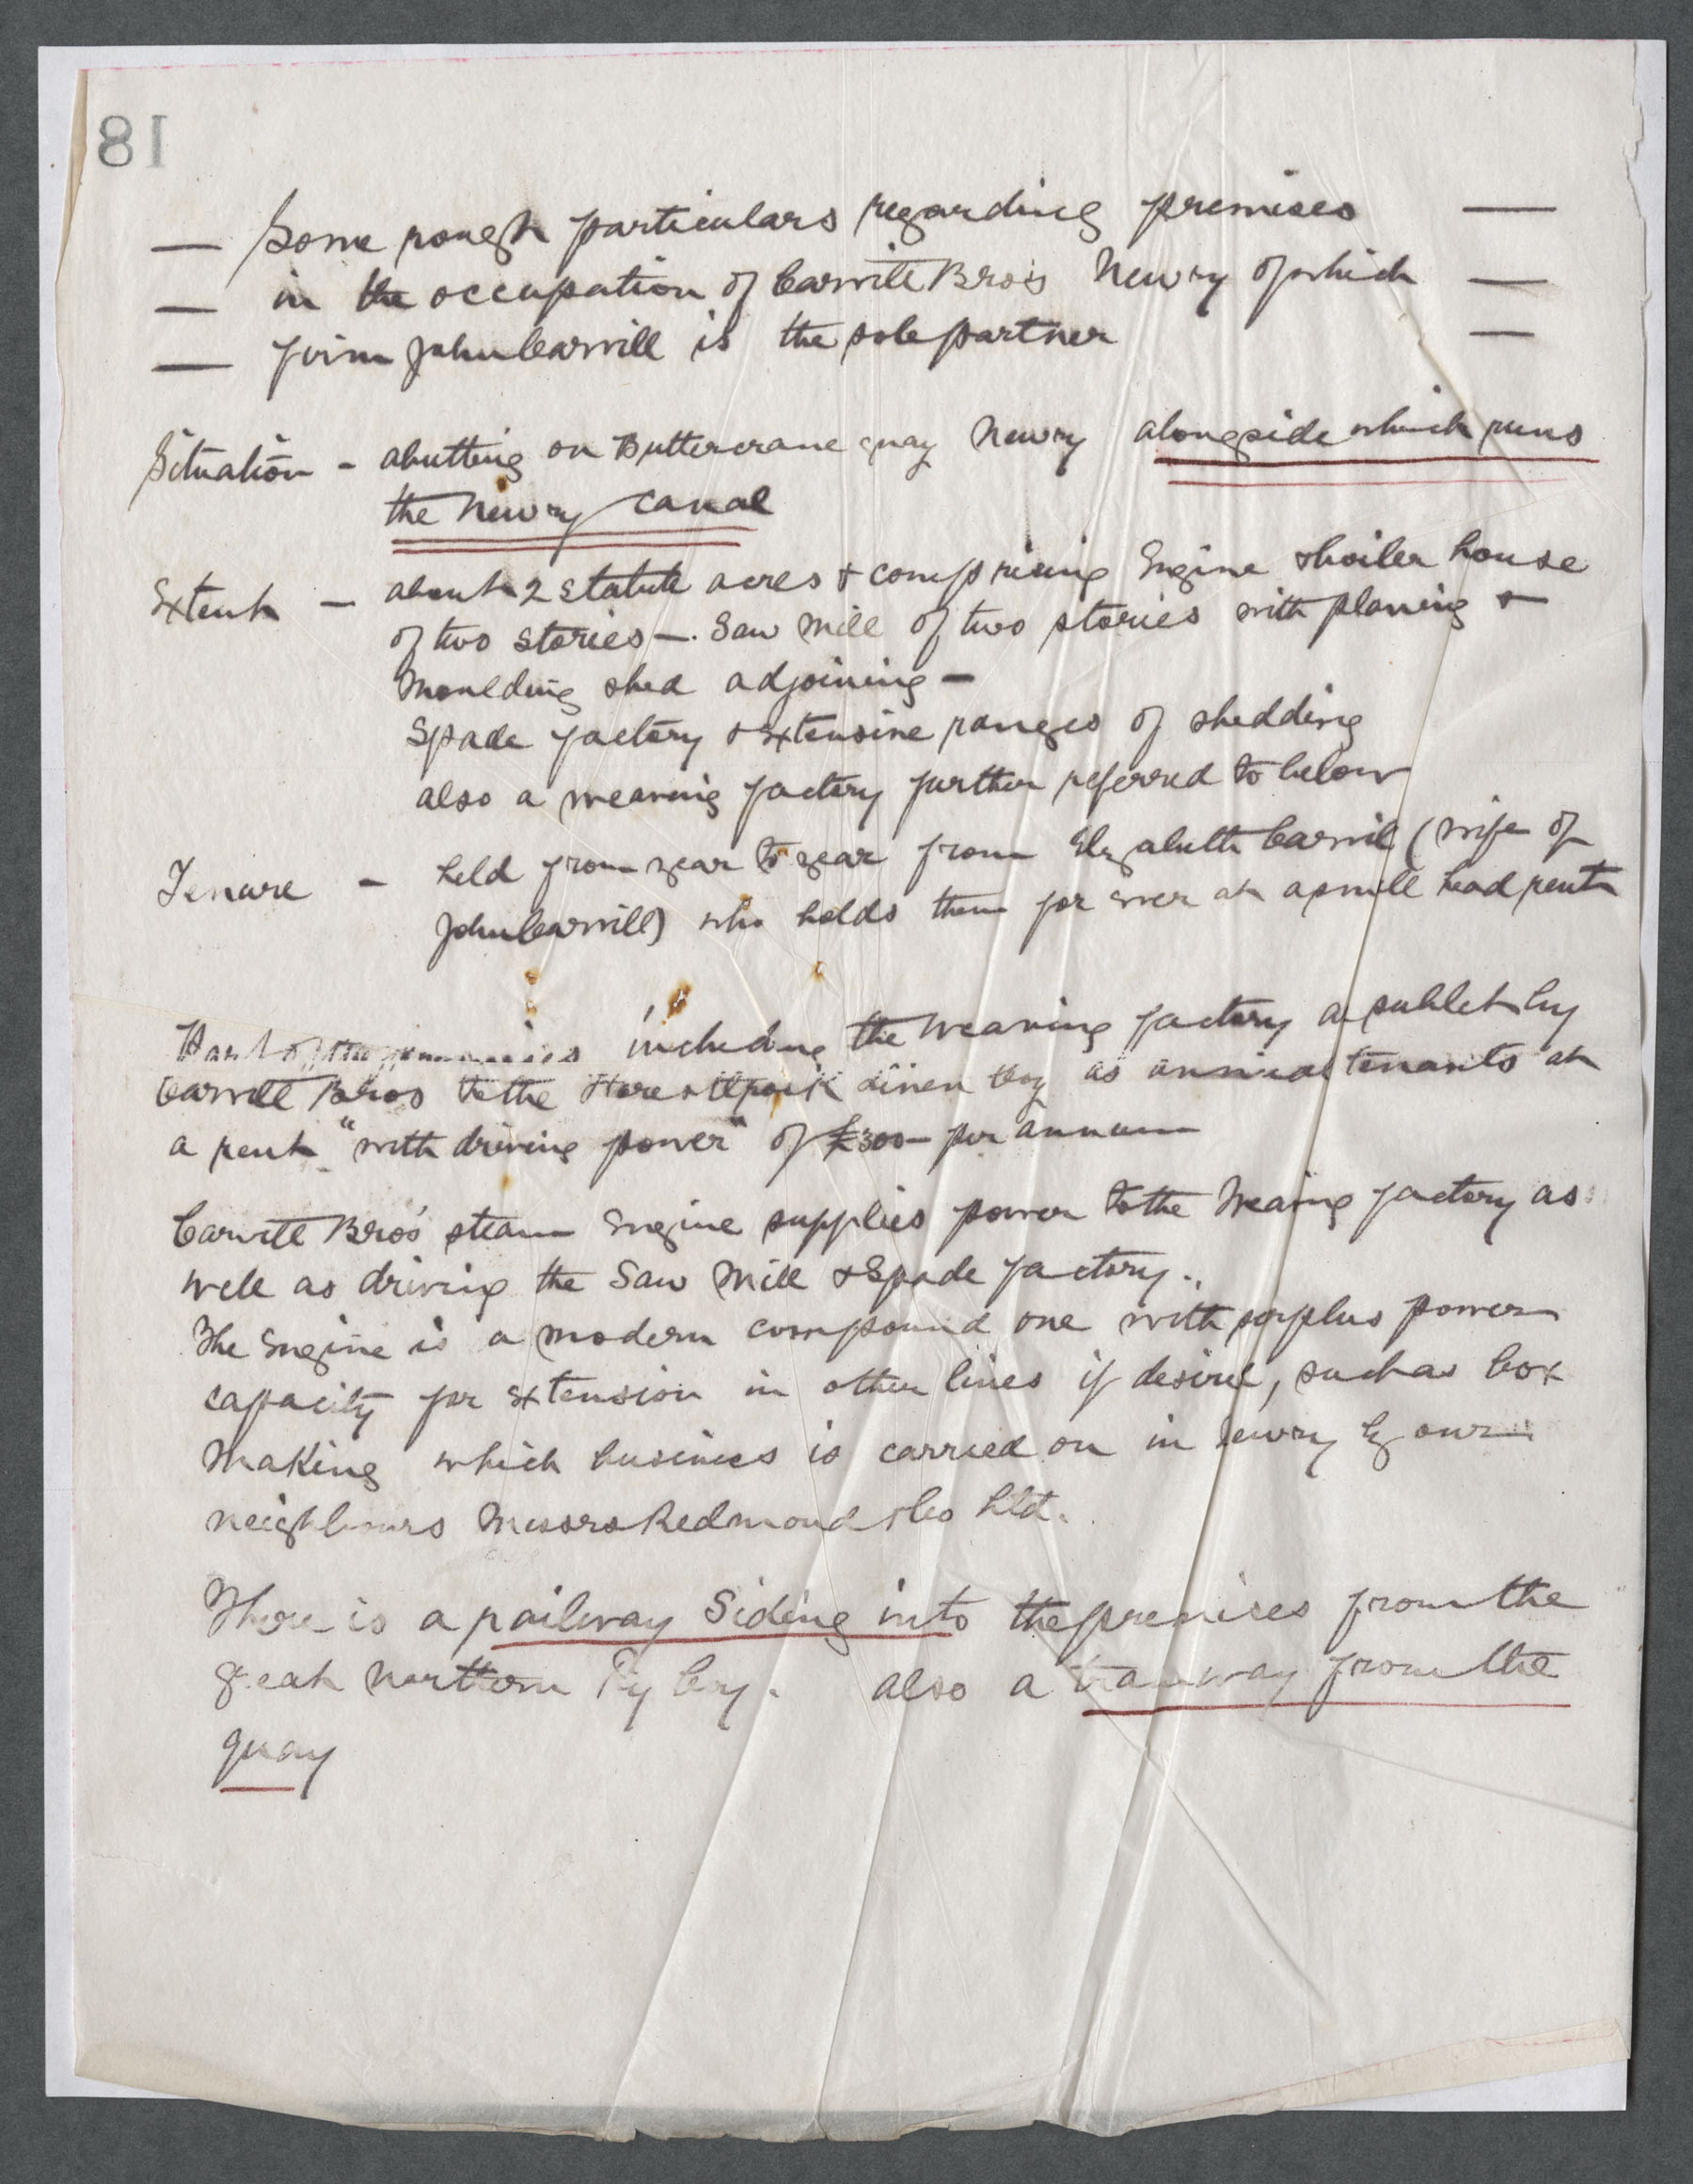 18
— Some rough particulars regarding premises —
— in the occupation of Carvill Bro's Newry of which —
— firm John Carvill is the sole partner —
Situation - abutting on Buttercrane quay Newry alongside which runs
the Newry Canal
Extent — about 2 statute acres & comprising Engine & boiler house
of two stories —. Saw Mill of two stories with planing &
Moulding shed adjoining —
Spade factory & extensive ranges of shedding
also a weaving factory further referred to below
Tenure - held from year to year from Elizabeth Carvill (wife of
John Carvill) who holds them for ever at a small head rent
Part of the premises including the Weaving factory are sublet by
Carvill Bros to the Linen Coy as annual tenants at
a rent "with driving power" of £300– per annum
Carvill Bro's steam Engine supplies power to the Weaving factory as
well as driving the Saw Mill & Spade factory.
The Engine is a modern compound one with surplus power
capacity for extension in other lines if desired, such as box
Making which business is carried on in Newry by our
neighbours Messrs Redmond & Co Ltd.
There is a railway Siding into the premises from the
Great Northern Ry Coy. also a tramway from the
quay